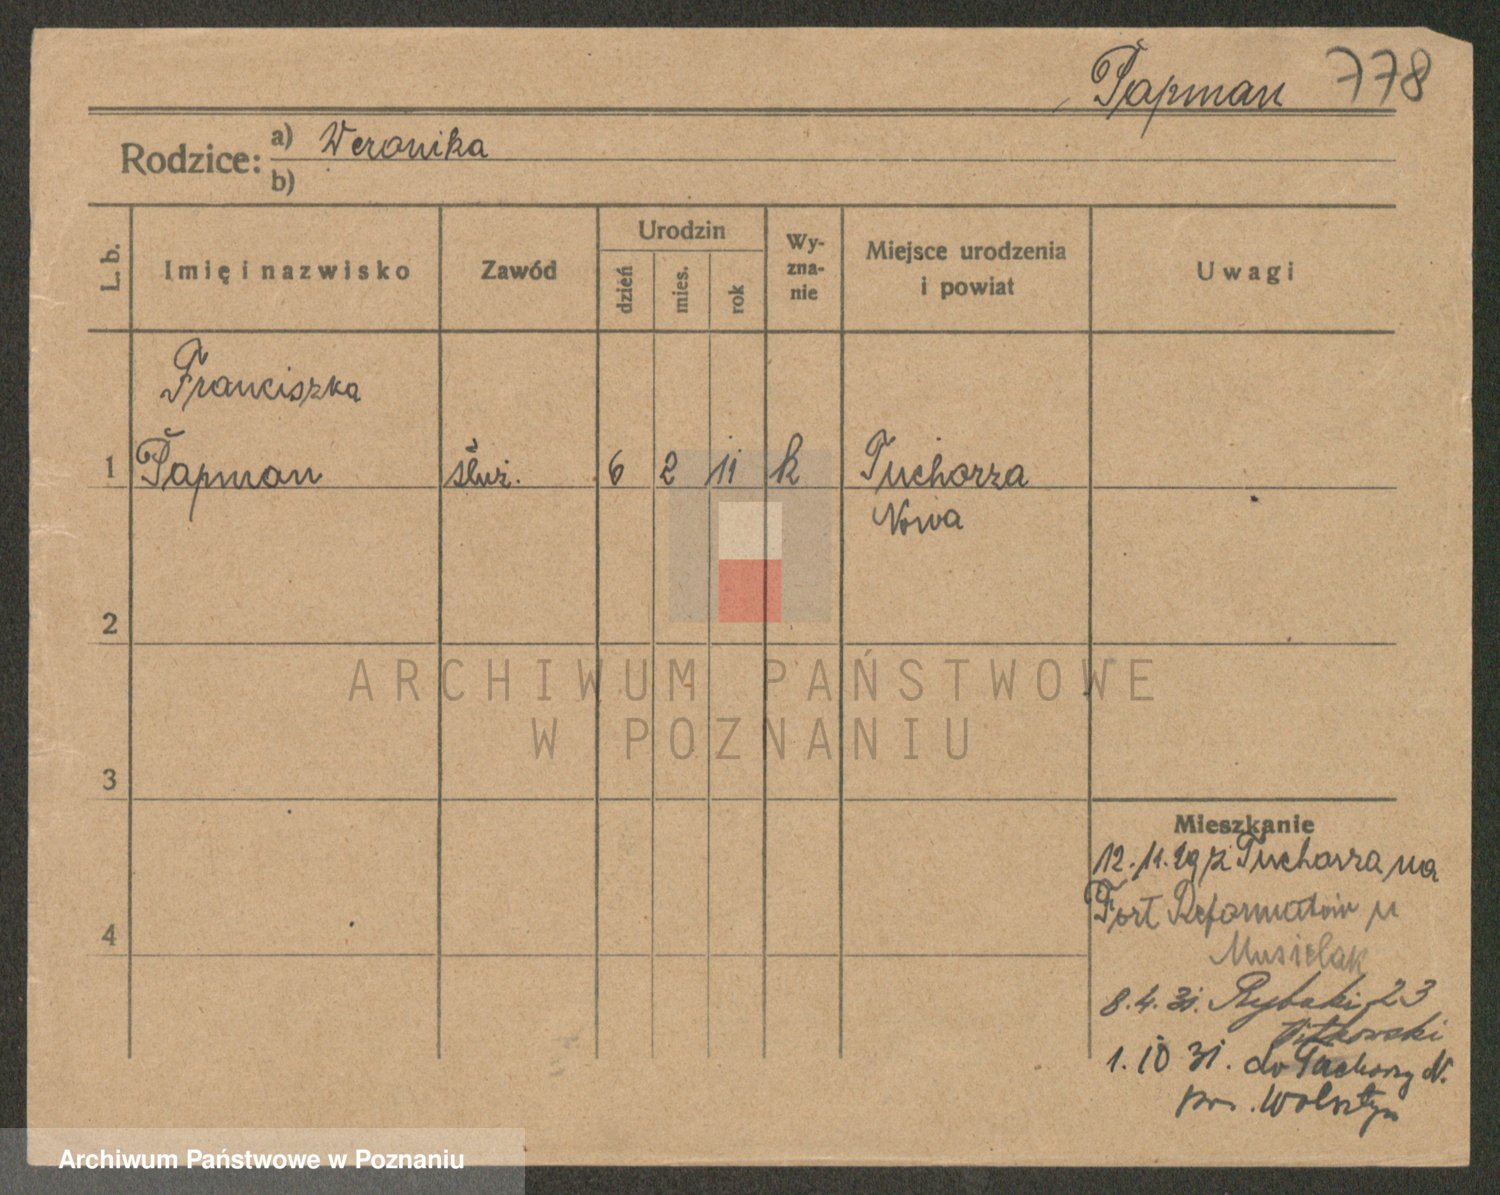 Tapman 778
Rodzice: a) Weronika
b)
L. b.
Imię i nazwisko
Zawód
Urodzin
dzień
mies.
rok
Wy-
zna-
nie
Miejsce urodzenia
i powiat
Uwagi
Franciszka
1 Tapman służ. 6 2 11 k Tuchorza
Nowa
2
3
4
ARCHIWUM PAŃSTWOWE
W POZNANIU
Mieszkanie
12.11.29 z Tuchorza na
Fort Reformatów u
Musielak
8.4.31. Rybaki 23
Witkowski
1. 10 31. do Tuchorzy N.
pow. Wolsztyn
Archiwum Państwowe w Poznaniu